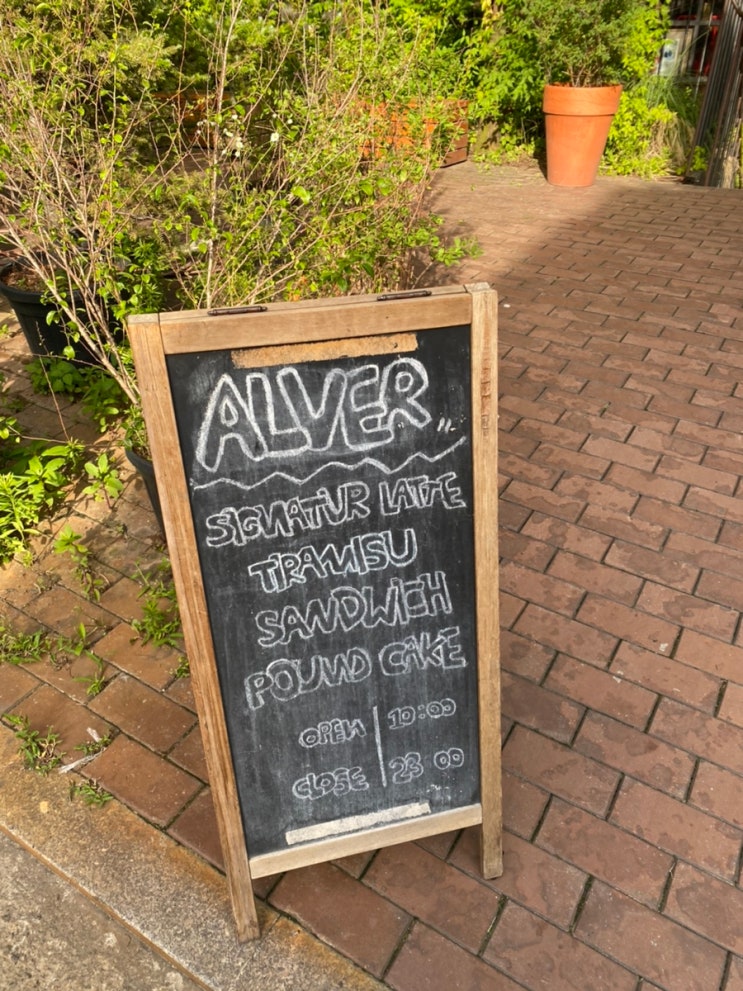 ALVER
SIGNATUR LATTE
TIRAMISU
SANDWICH
POUND CAKE
OPEN 10:00
CLOSE 23:00